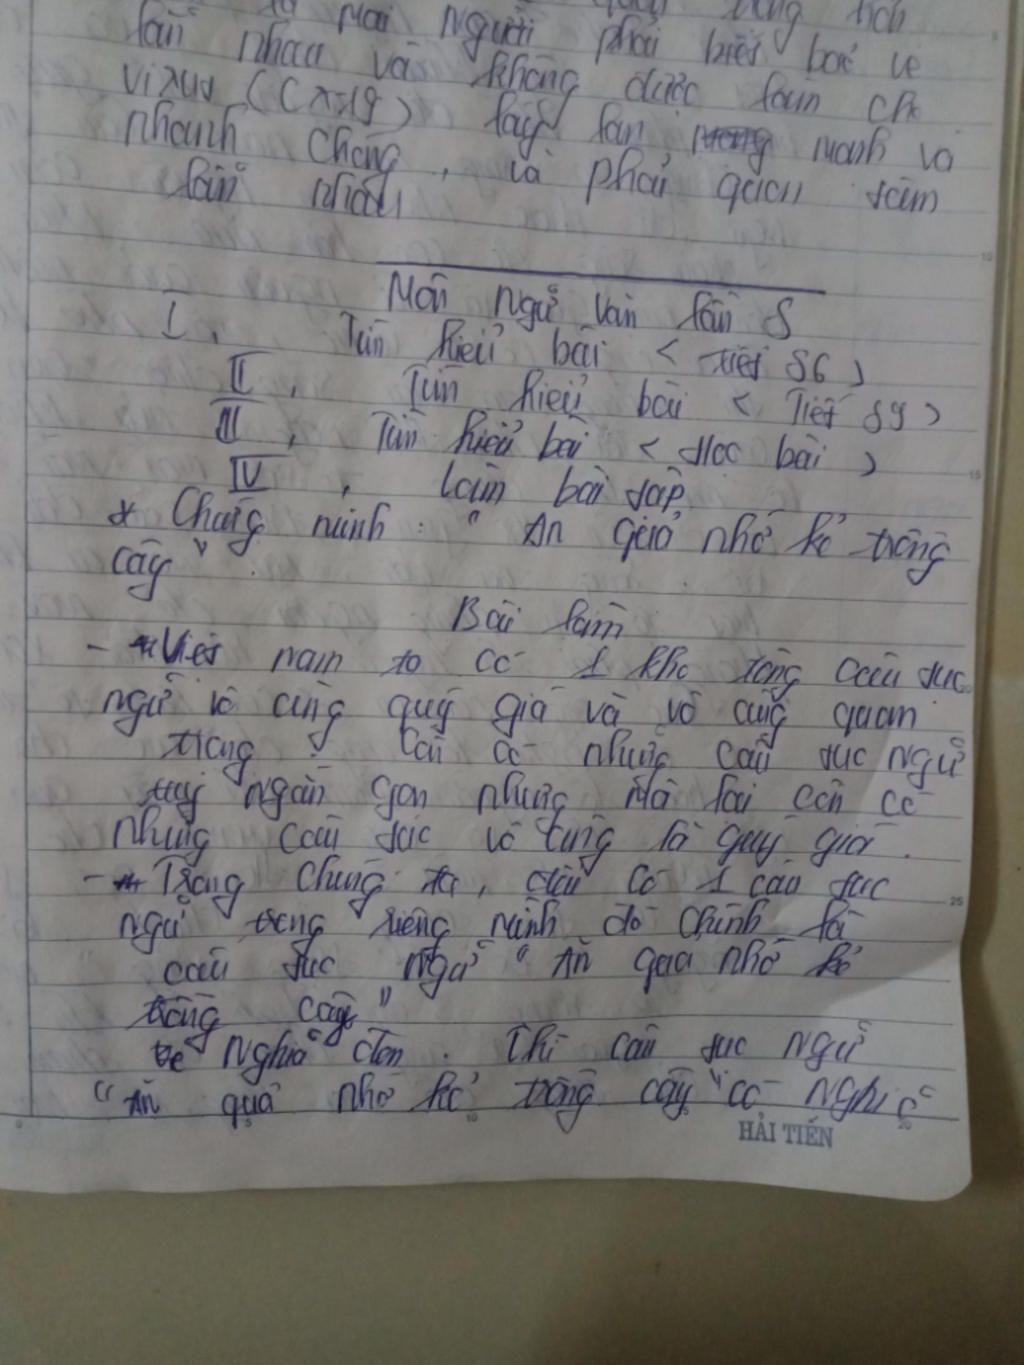 Mọi người phải biết bảo vệ
lẫn nhau và không được làm cho
virus (C 19) lây lan mạnh và
nhanh chóng, và phải quan tâm
lẫn nhau
Môn Ngữ Văn lần 8
I, Tìm hiểu bài < tiết 86 >
II, Tìm hiểu bài < Tiết 89 >
III, Tìm hiểu bài < Học bài >
IV, Làm bài tập
* Chứng minh : " Ăn quả nhớ kẻ trồng
cây " .
Bài làm
- Việt nam ta có 1 kho tàng câu tục
ngữ vô cùng quý giá và vô cùng quan
trọng . Câu có những câu tục ngữ
tuy ngắn gọn nhưng mà lại còn có
những câu tục vô cùng là quý giá .
- Trong chúng ta, đều có 1 câu tục
ngữ trong riêng mình đó chính là
câu tục ngữ " Ăn quả nhớ kẻ
trồng cây "
Về Nghĩa đen . Thì câu tục ngữ
" Ăn quả nhớ kẻ trồng cây " có nghĩa
HẢI TIẾN